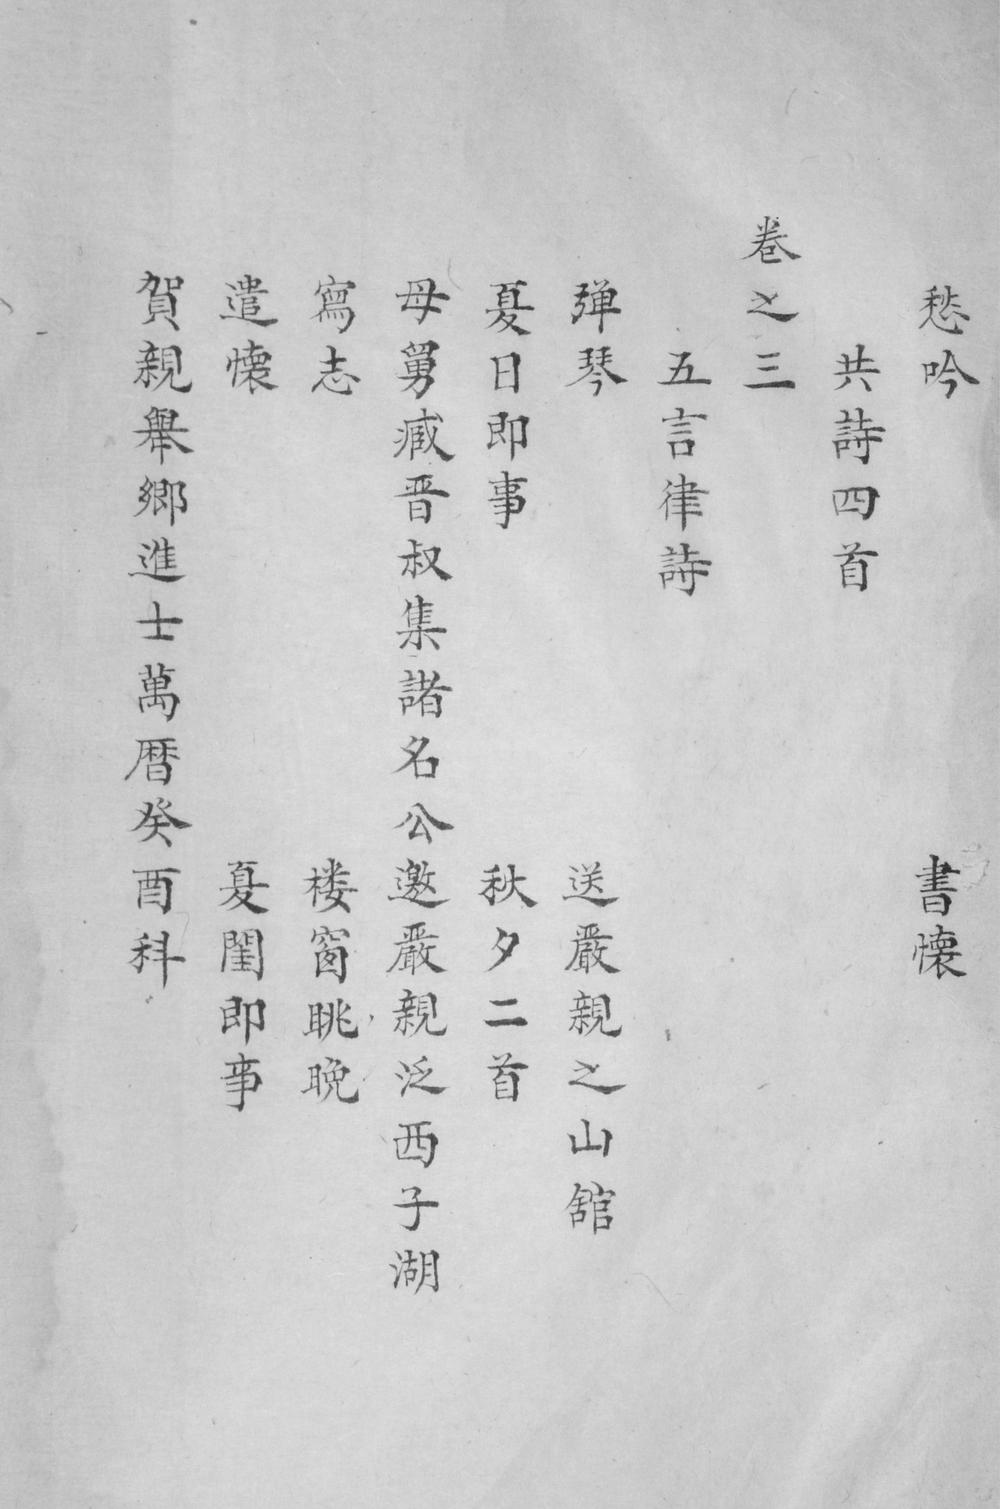 愁吟　書懷
共詩四首
卷之三
五言律詩
弹琴　送嚴親之山舘
夏日即事　秋夕二首
母舅臧晋叔集諸名公邀嚴親泛西子湖
寫志　楼窗眺晚
遣懷　夏閨即事
賀親舉鄉進士萬曆癸酉科